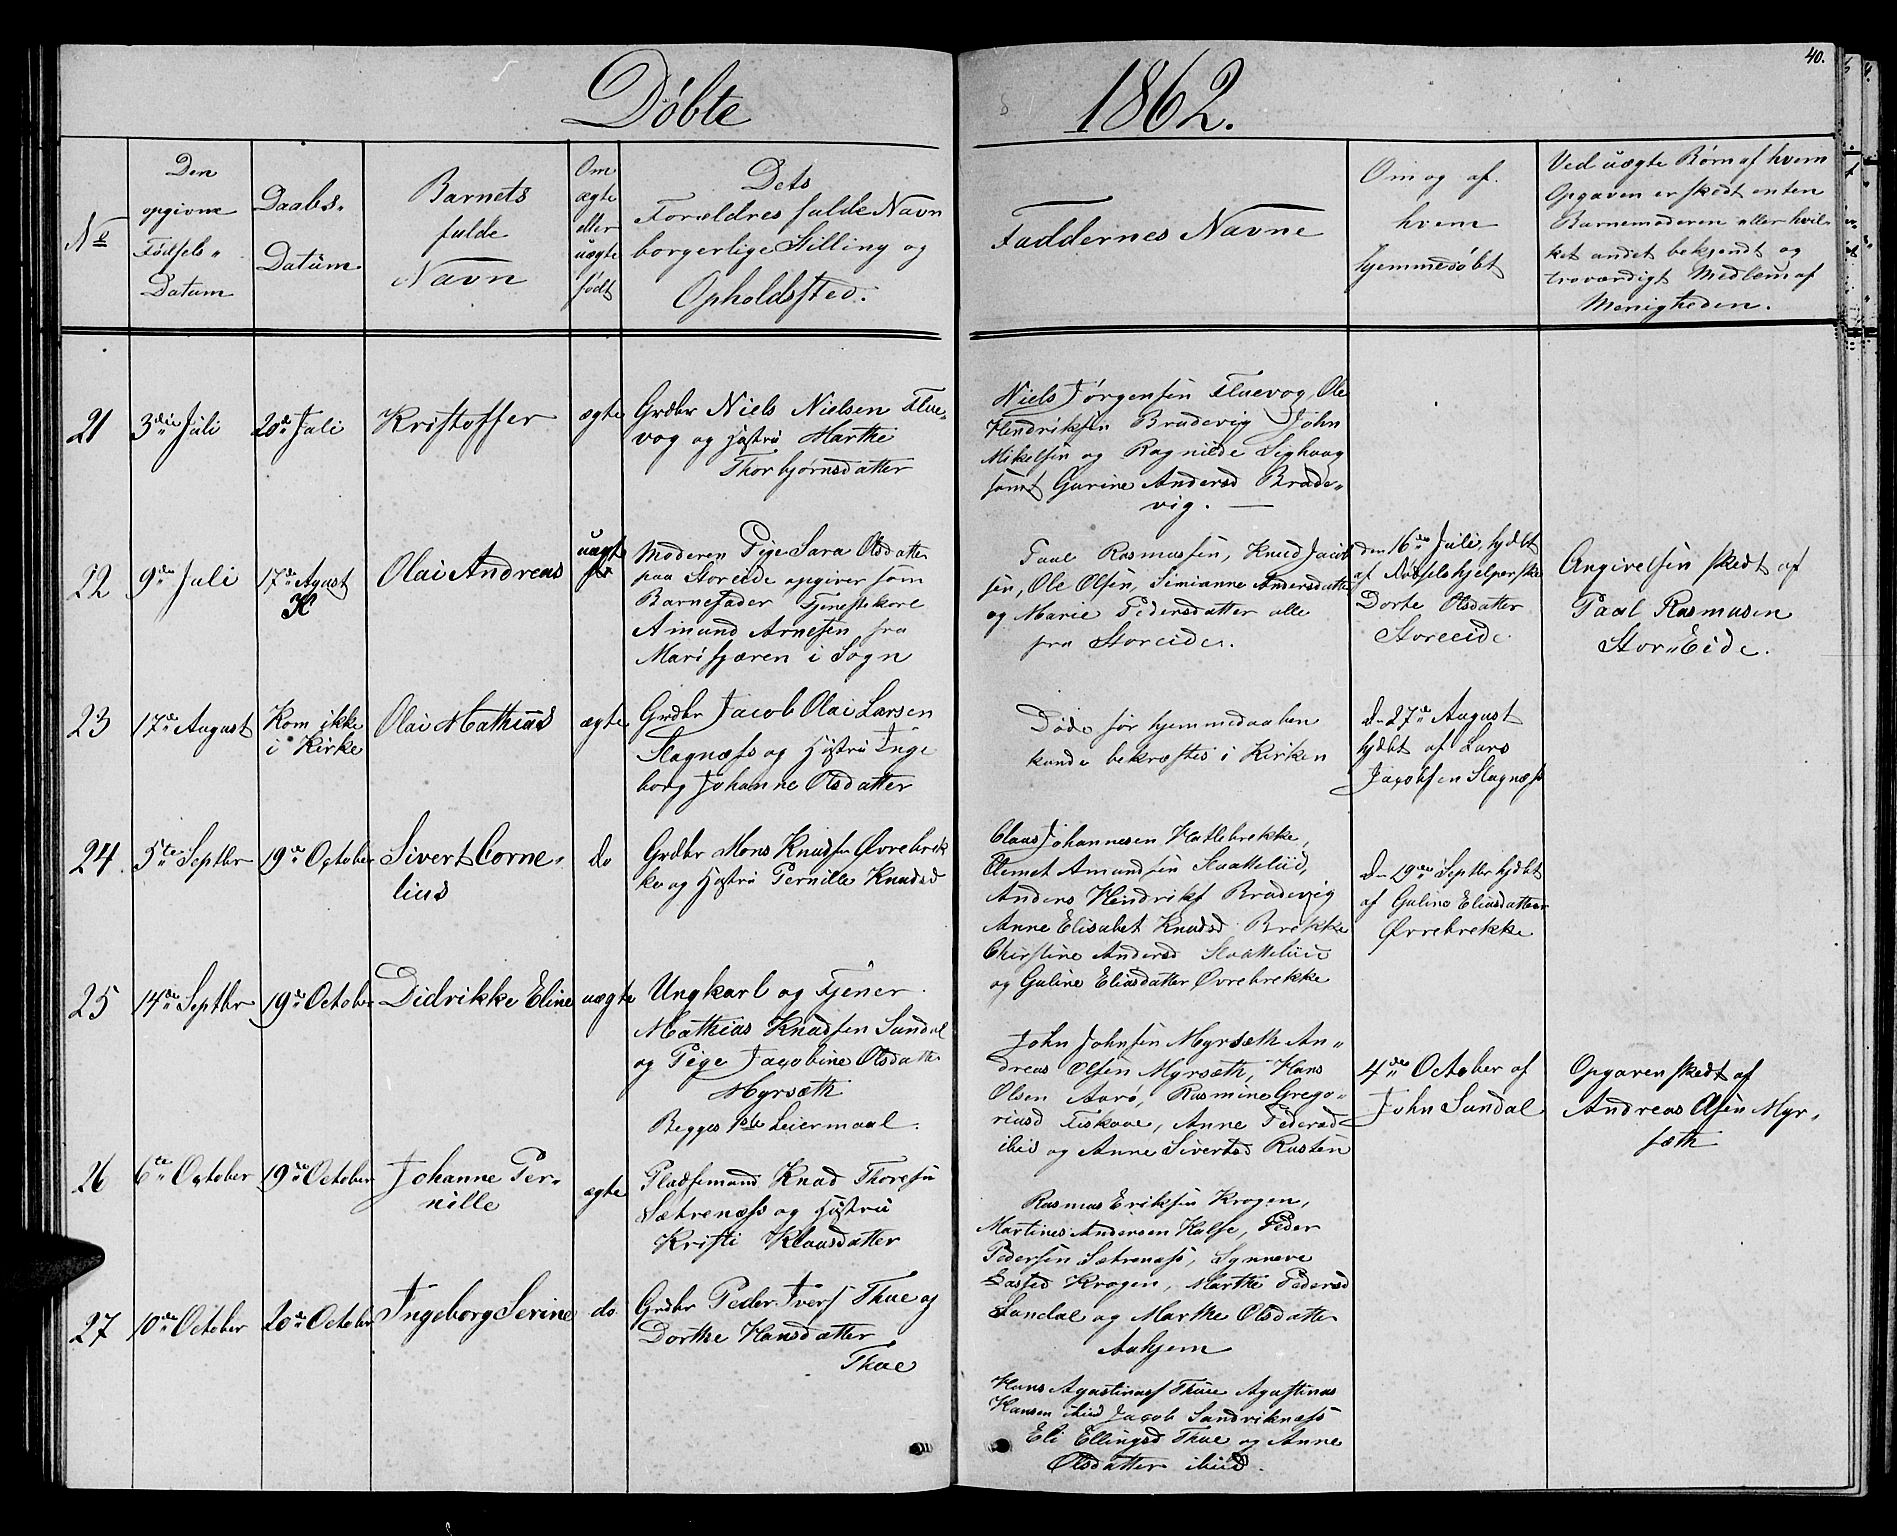 40.
Døbte 1862.
No
Den
opgivne
Fødsels„
Datum
Daabs„
Datum
Barnets
fulde
Navn
Om
ægte
eller
uægte
født
Dets
Forældres fulde Navn
borgerlige Stilling og
Opholdssted.
Faddernes Navne
Om og af
hvem
hjemmedøbt
Ved uægte Børn af hvem
Opgaven er skedt enten
Barnemoderen eller hvil„
ket andet bekjendt og
troværdigt Medlem af
Menigheden.
21
3die Juli
20de Juli
Kristoffer
ægte
Grdbr Niels Nielsen Flue„
vog og Hustru Marthe
Thorbjørnsdatter
Niels Jørgensen Fluevog, Ole
Hendriksen Bradevig John
Mikelsen og Ragnilde
samt Gurine Andersd Brade„
vig. —
22
9de Juli
17de Agust
K
Olai Andreas
uægte
Moderen Pige Sara Olsdatter
paa Storeide opgiver som
Barnefader Tjenestekare
Amund Arnesen fra
Marifjæren i Sogn
Paal Rasmussen, Knud Jacob
sen, Ole Olsen, Simianne Andersdatter
og Marie Pedersdatter alle
fra Storeide.
Den 16de Juli, hjdbt
af Nødselshjelperske
Dorte Olsdatter
Storeeide
Angivelsen skedt af
Paal Rasmusen
Stor„Eide.
23
17de August
Kom ikke
i Kirke
Olai Mathias
ægte
Grdbr Jacob Olai Larsen
Slagnæss og Hustru Inge
borg Johanne Olsdatter
Døde før hjemmedaaben
kunde bekræftes i Kirken
D. 27de August
hjdbt af Lars
Jacobsen Slagnæss
24.
5te Septbr
19de October
Sivert Corne„
lius
do
Grdbr Mons Knudsen Øvrebrek
ke og Hustru Pernille Knudsd
Claas Johannesen Hatlebrekke,
Clemet Amundsen
Anders Hendriks Bradevig
Anne Elisabet Knudsd Brekke
Christine Andersd
og Guline Eliasdatter Øvrebrekke
D. 29de Septbr hjdbt
af Guline Eliasdatter
Øvrebrekke
25
14de Septbr
19de October
Didrikke Eline
uægte
Ungkarl og Tjener
Mathias Knudsen Sundal
og Pige Jacobine Olsdatter
Myrsæth
Begges 1ste Leiermaal.
John Johnsen Myrsæth An„
dreas Olsen Myrsæth, Hans
Olsen Aarø, Rasmine Grego„
riusd Fiskaae, Anne Pedersd
ibid og Anne Sivertsd Rusten
4de October af
John Sundal
Opgaven skedt af
Andreas Olsen Myr„
sæth
26
6te October
19de October
Johanne Per„
nille
ægte
Pladsemand Knud Thoresen
Sætrenæss og Hustru
Kristi Klausdatter
Rasmus Eriksen Krogen,
Martines Andersen Kalse, Peder
Pedersen Sætrenæss, Synneve
Krogen, Marthe Pedersd
Sundal og Marthe Olsdatter
Aahjem
27
10de October
20de October
Ingeborg Serine
do
Grdbr Peder Ivers Thue og
Dorthe Hansdatter
Thue
Hans Agustinuss Thue Agustinus
Hansen ibid Jacob Sandviknæss
Eli Ellingsd Thue og Anne
Olsdatter ibid.